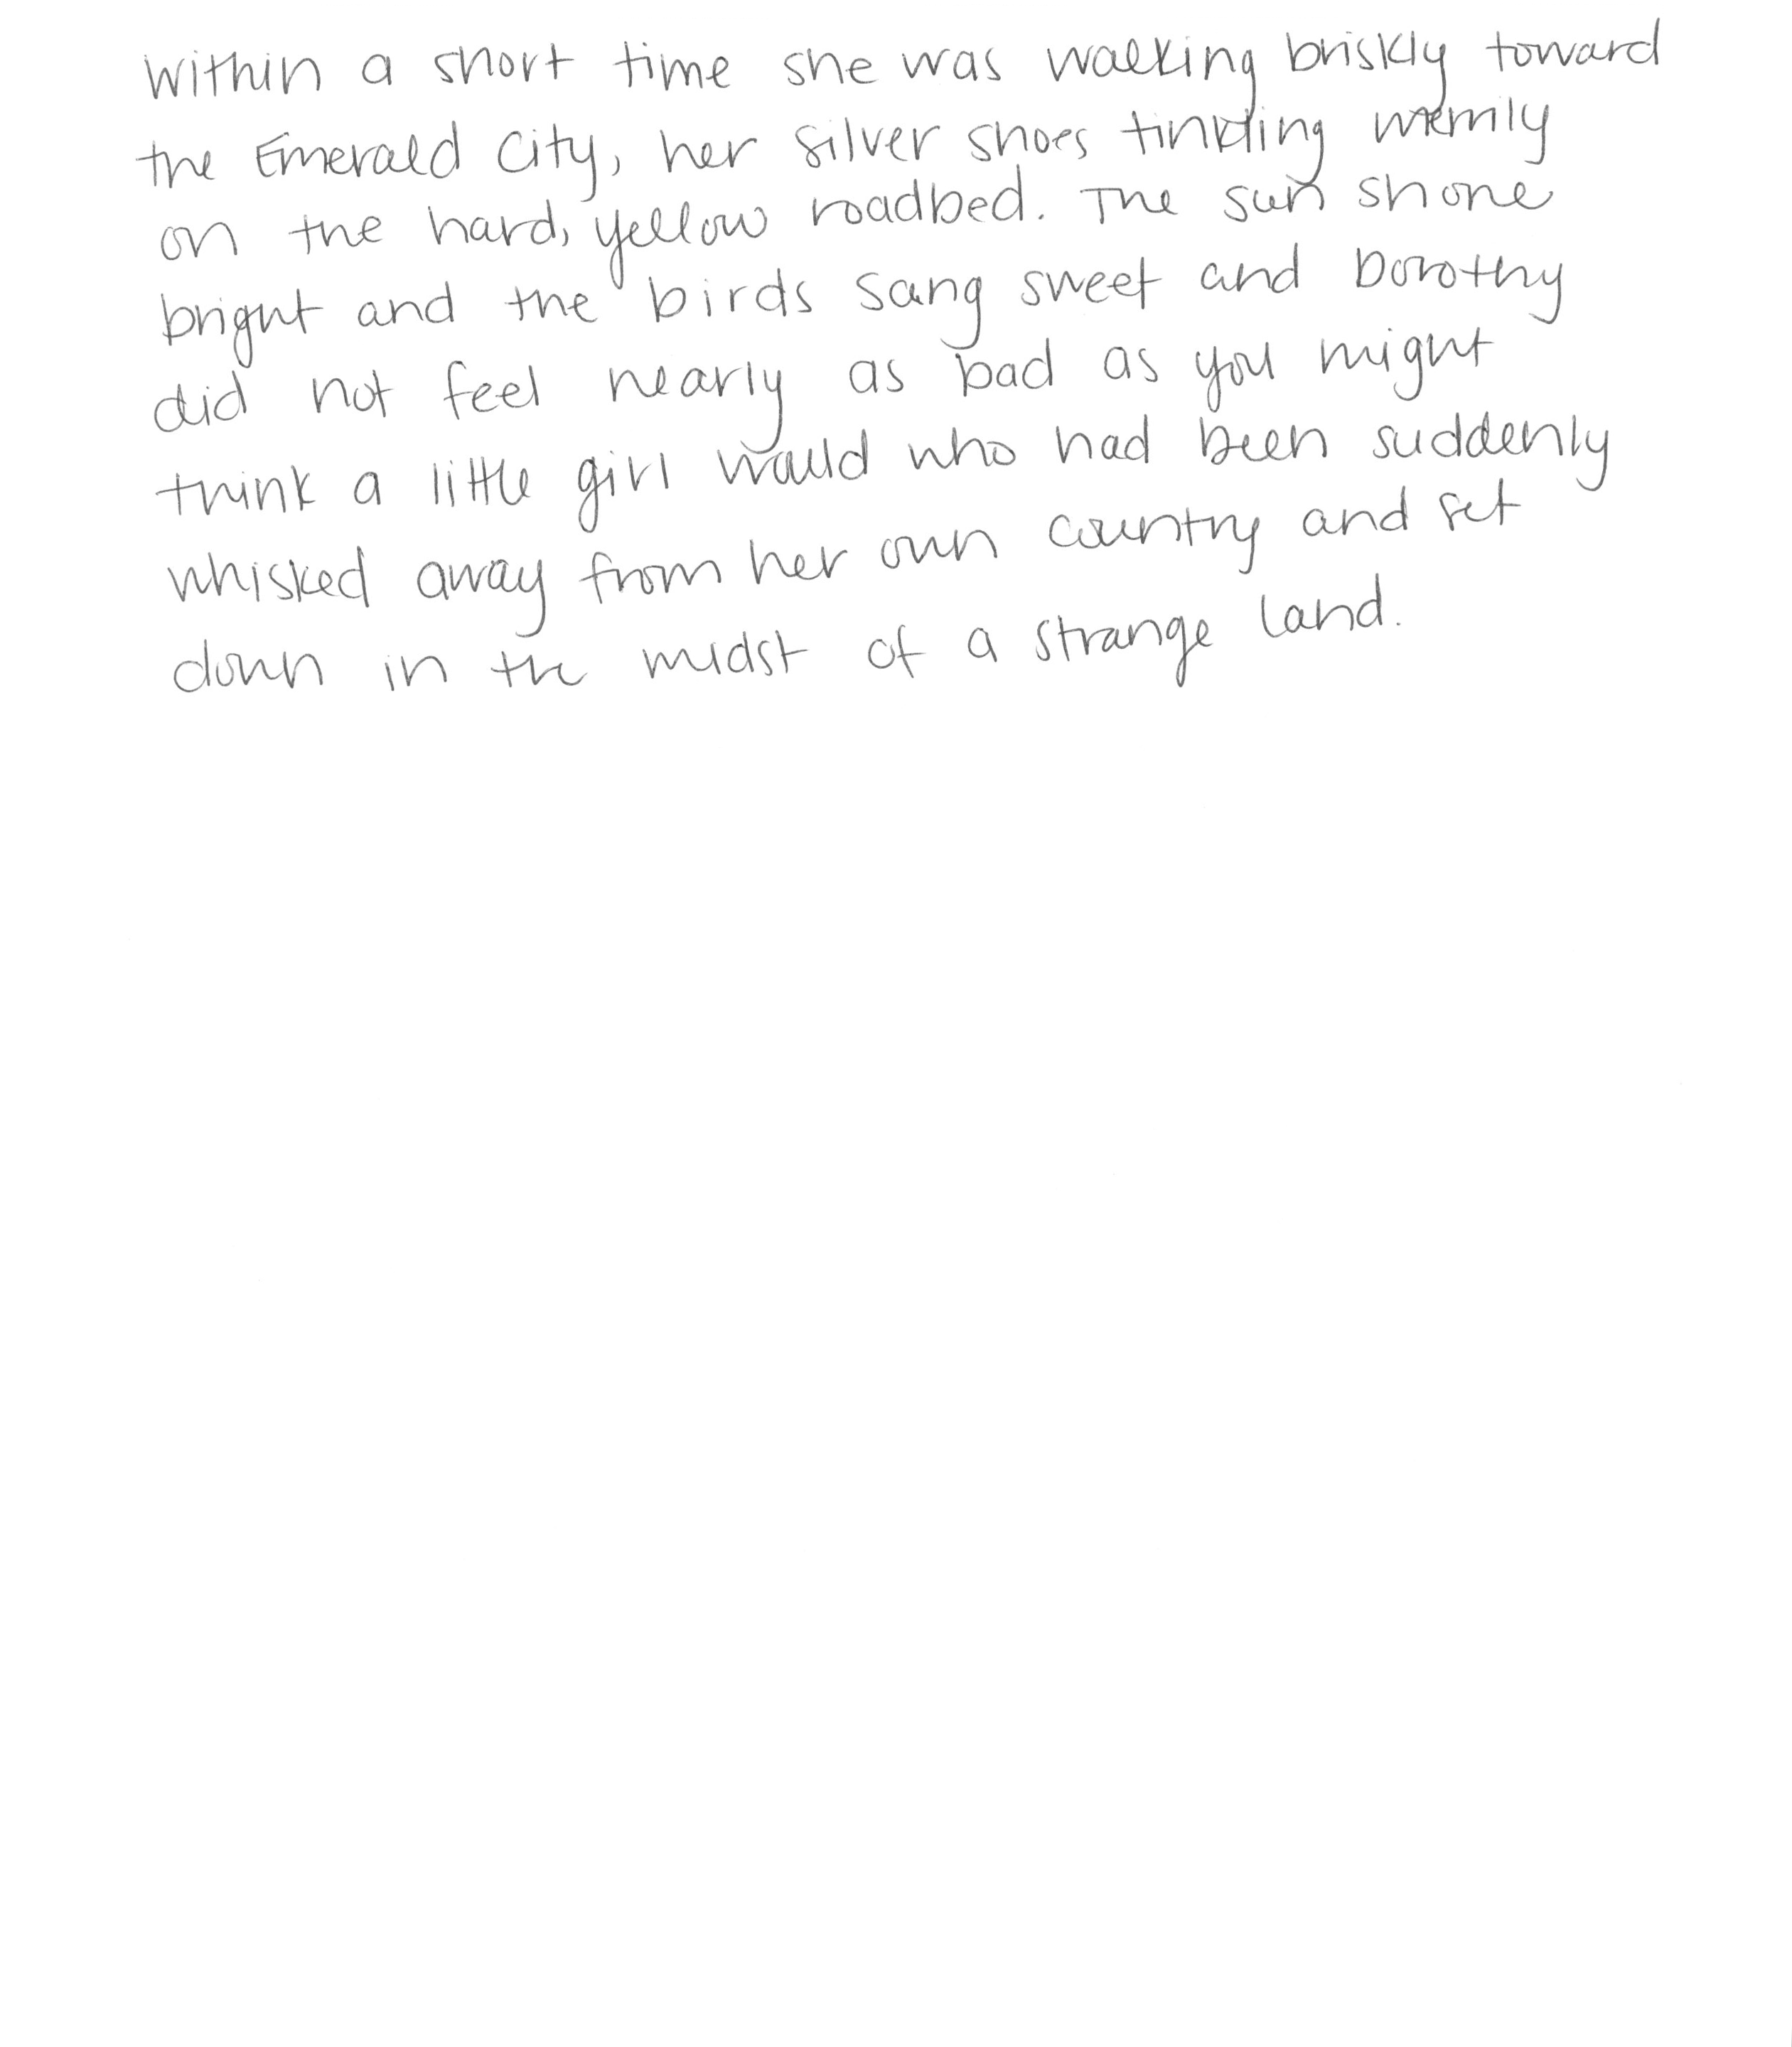 Within a short time she was walking briskly toward
the Emerald City, her silver shoes tinkling merrily
on the hard, yellow roadbed. The sun shone
bright and the birds sang sweet and Dorothy
did not feel nearly as bad as you might
think a little girl would who had been suddenly
whisked away from her own country and set
down in the midst of a strange land.